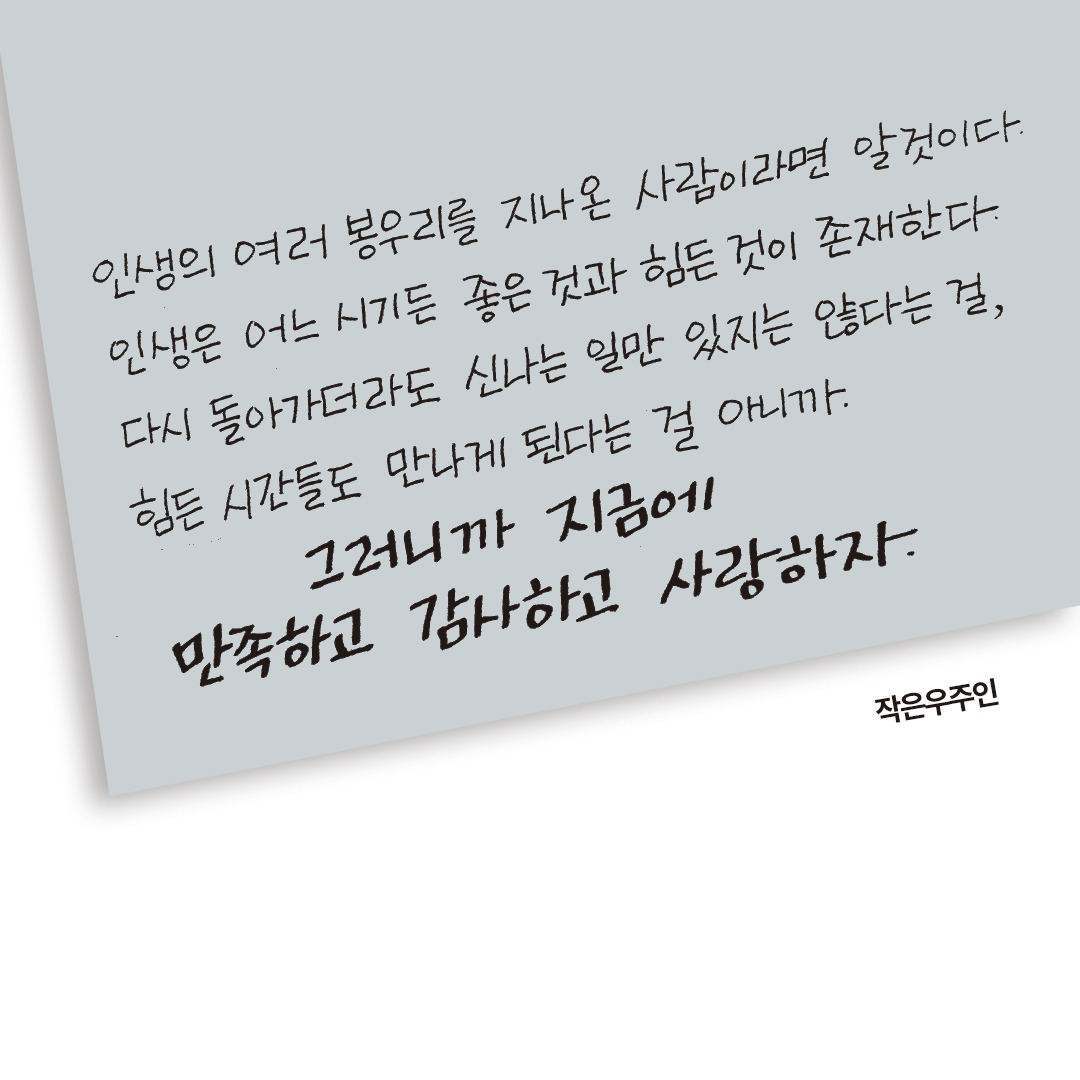 인생의 여러 봉우리를 지나온 사람이라면 알것이다.
인생은 어느 시기든 좋은 것과 힘든 것이 존재한다.
다시 돌아가더라도 신나는 일만 있지는 않다는 걸,
힘든 시간들도 만나게 된다는 걸 아니까.
그러니까 지금에
만족하고 감사하고 사랑하자.
작은우주인